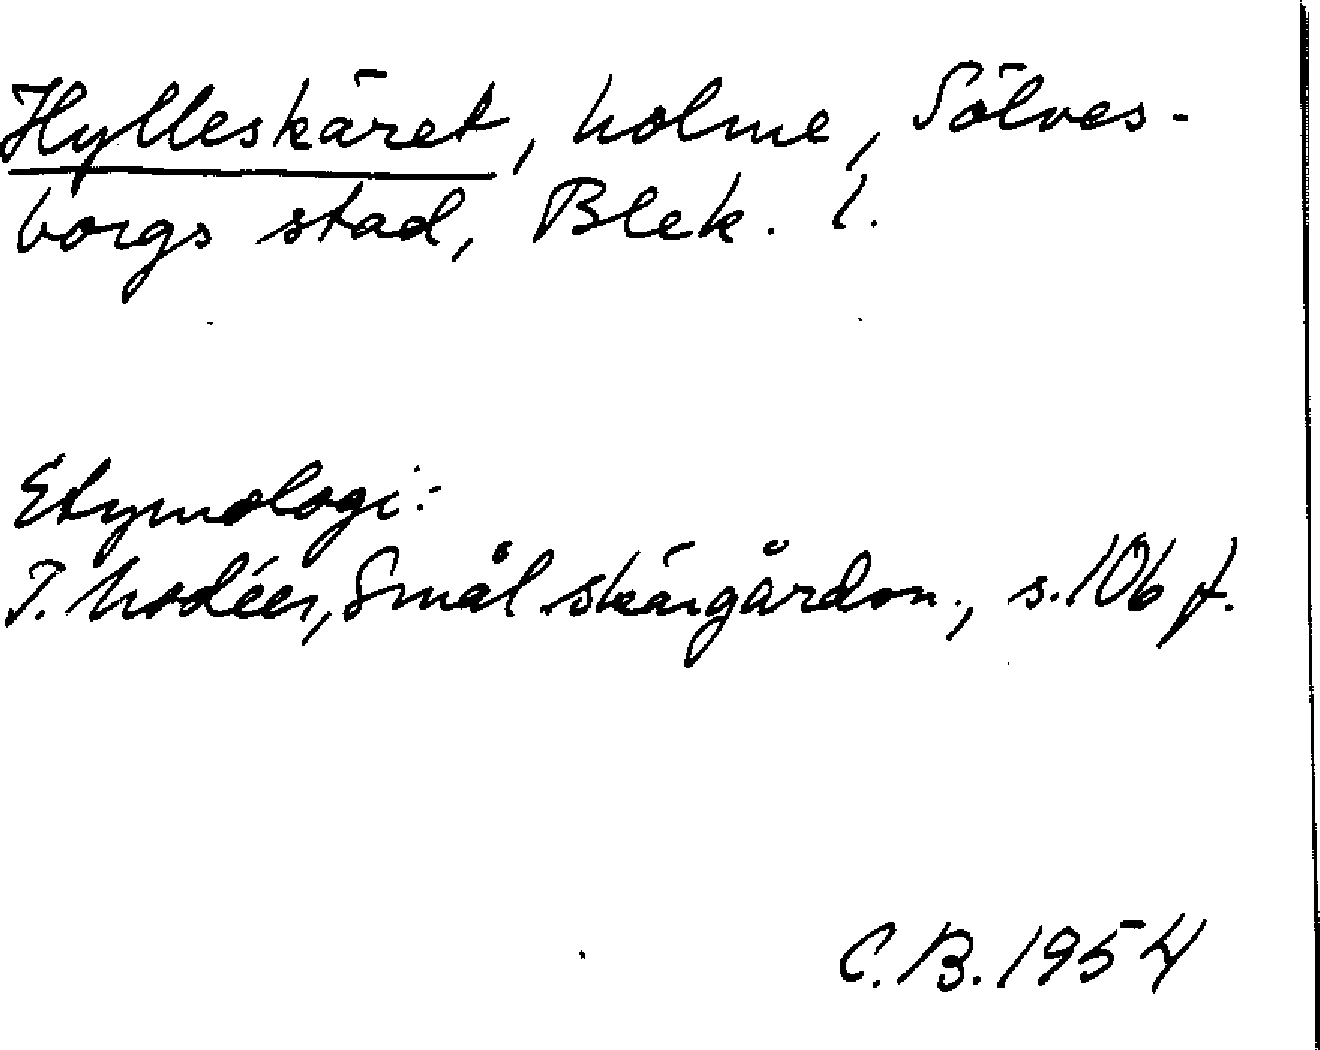 Hylleskäret, holme, Sölves-
borgs stad, Blek. l.
Etymologi:
I. Modéer, Smål skärgårdsn., s. 106 f.
C. B. 1954